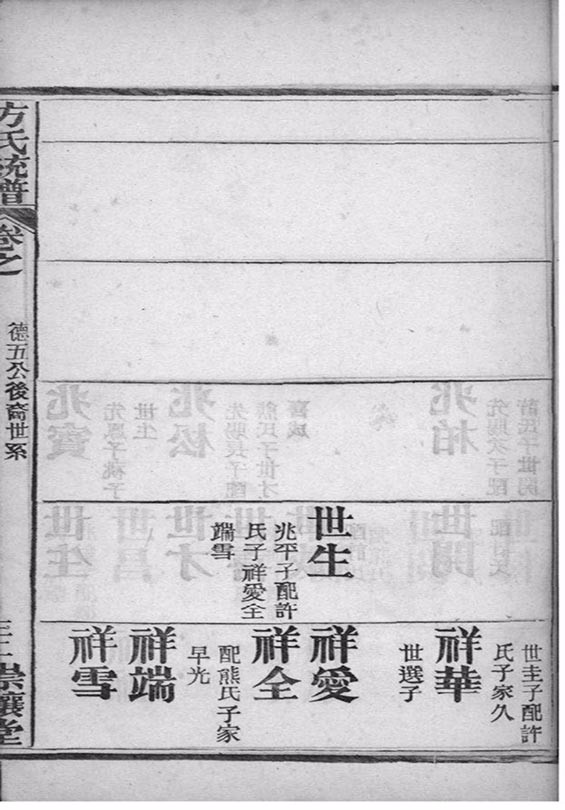 世生
兆平子配許
氏子祥愛全
端雪
世圭子配許
氏子家久
祥華
世選子
祥愛
祥全
配熊氏子家
早光
祥端
祥雪
方氏統譜
卷之
德五公後裔世系
崇讓堂